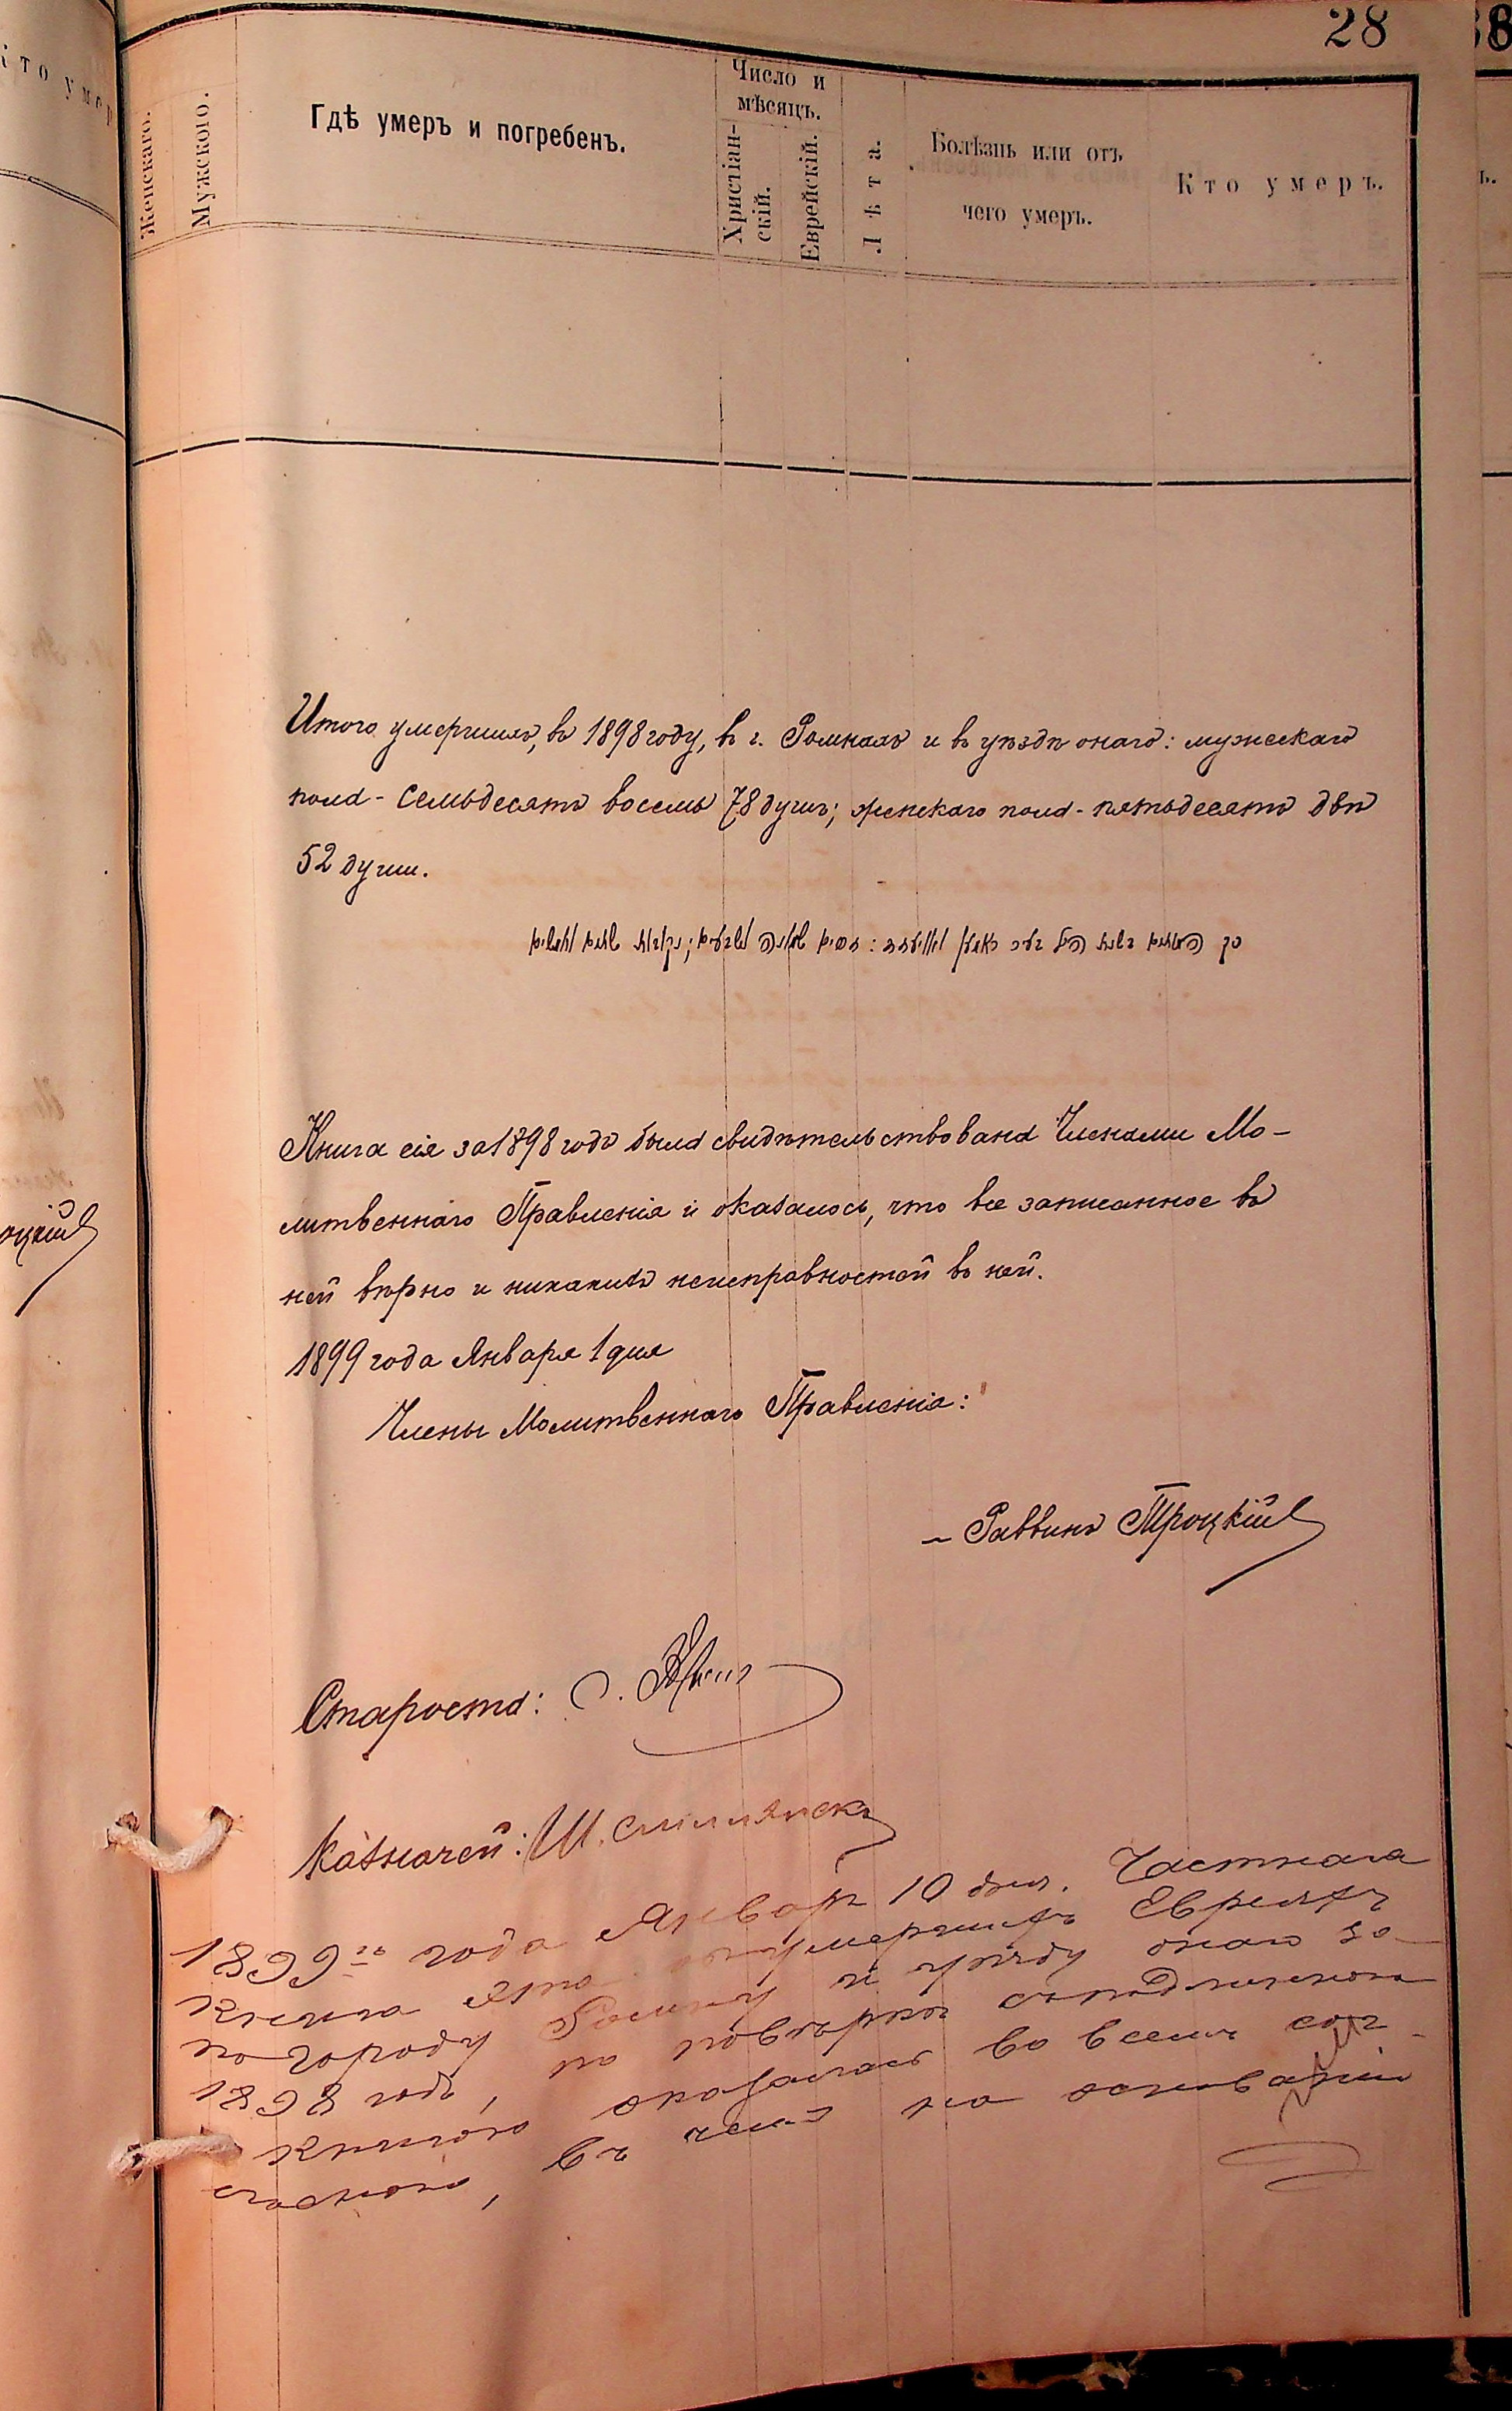 28
Женскаго.
Мужского.
Гдѣ умеръ и погребенъ.
Число и
мѣсяцъ.
Христіан-
скій.
Еврейскій.
Лѣта.
Болѣзнь или отъ
чего умеръ.
Кто умеръ.
Итого умершихъ, въ 1898 году, въ г. Ромнахъ и въ уѣздѣ онаго: мужескаго
пола - семьдесятъ восемь 78 душъ; женскаго пола - пятьдесятъ двѣ
52 души.
Книга сія за 1898 годъ была свидѣтельствована Членами Мо-
литвеннаго Правленія и оказалось, что все записанное въ
ней вѣрно и никакихъ неисправностей въ ней.
1899 года Января 1 дня
Члены Молитвеннаго Правленія:
- Раввинъ Троцкій
Староста:
Казначей: Ш.
1899го года Январѣ 10 дня. Частная
книга эта умершихъ Евреяхъ
по городу Ромну и уѣзду онаго за
1898 годъ, по повѣркѣ съ подлинною
книгою оказалась во всемъ сог-
ласною, въ чемъ на основаніи